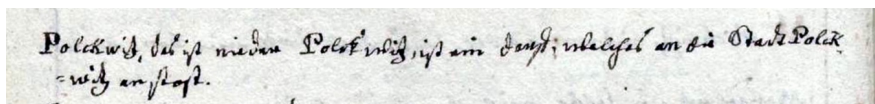 Polckwitz, das ist nieder Polckwitz, ist ein dorff, welches an die Stadt Polck
=witz anstost.